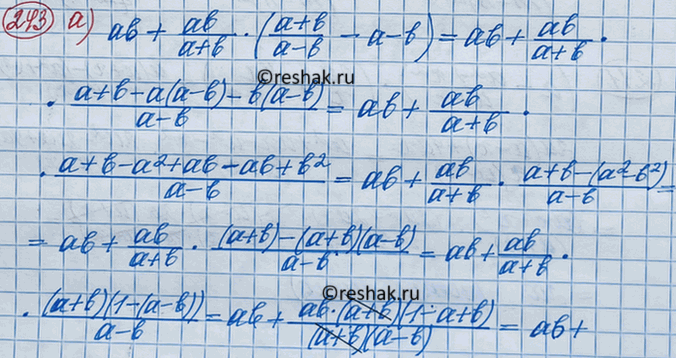 243 а) ab + ab/(a+b) · ((a+b)/(a-b) - a - b) = ab + ab/(a+b) ·
©reshak.ru
· (a+b-a(a-b)-b(a-b))/(a-b) = ab + ab/(a+b) ·
· (a+b-a²+ab-ab+b²)/(a-b) = ab + ab/(a+b) · (a+b-(a²-b²))/(a-b) =
= ab + ab/(a+b) · ((a+b)-(a+b)(a-b))/(a-b) = ab + ab/(a+b) ·
©reshak.ru
· ((a+b)(1-(a-b)))/(a-b) = ab + (ab·(a+b)(1-a+b))/((a+b)(a-b)) = ab +